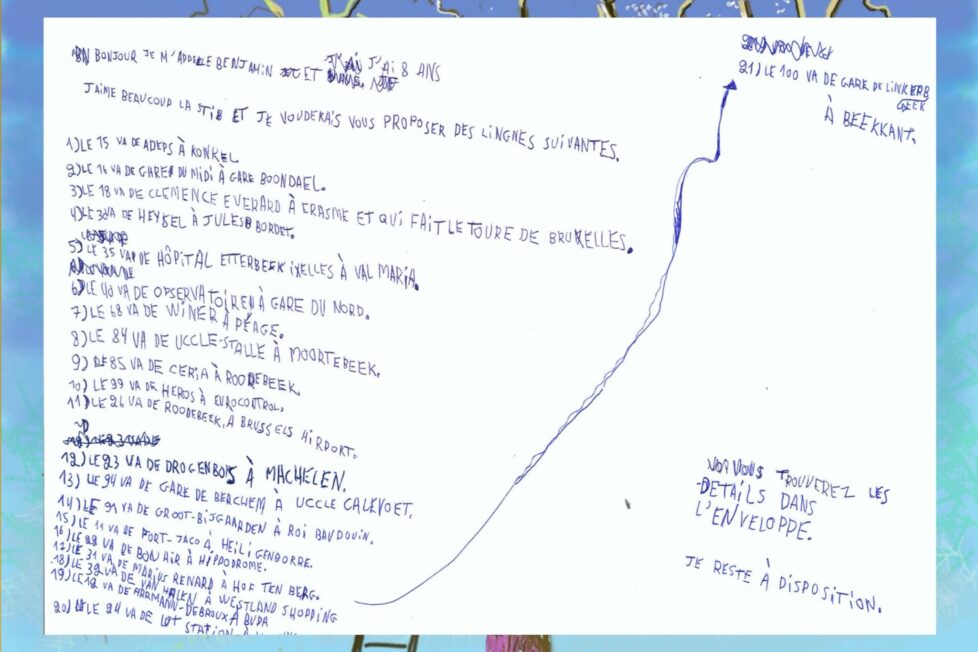 BONJOUR JE M'APPELLE BENJAMIN ET J'AI 8 ANS
J'AIME BEAUCOUP LA STIB ET JE VOUDERAIS VOUS PROPOSER DES LINGNES SUIVANTES.
1) LE 15 VA DE ADEPS À KONKEL.
2) LE 16 VA DE GARE DU MIDI À GARE BOONDAEL.
3) LE 18 VA DE CLEMENCE EVERARD À ERASME ET QUI FAIT LE TOURE DE BRUXELLES.
4) LE 3 VA DE HEYKEL À JULES BORDET.
5) LE 35 VA DE HÔPITAL ETTERBEEK IXELLES À VAL MARIA.
6) LE 40 VA DE OBSERVATOIRE À GARE DU NORD.
7) LE 68 VA DE WINER À PÉAGE.
8) LE 84 VA DE UCCLE-STALLE À MOORTEBEEK.
9) LE 85 VA DE CERIA À ROODEBEEK.
10) LE 99 VA DE HEROS À EUROCONTROL.
11) LE 26 VA DE ROODEBEEK À BRUSSELS AIRPORT.
12) LE 23 VA DE DROGENBOS À MACHELEN.
13) LE 94 VA DE GARE DE BERCHEM À UCCLE CALEVOET.
14) LE 91 VA DE GROOT-BIJGAARDEN À ROI BAUDOUIN.
15) LE 11 VA DE FORT-JACO À HEILIGENBORRE.
16) LE 22 VA DE BON AIR À HIPPODROME.
17) LE 31 VA DE MARIUS RENARD À HOF TEN BERG.
18) LE 32 VA DE VAN HALEN À WESTLAND SHOPPING
19) LE 12 VA DE HERRMANN-DEBROUX À BUDA
20) LE 24 VA DE LOT STATION À
21) LE 100 VA DE GARE DE LINKEB
BEEK
À BEEKKANT.
VOUS TROUVEREZ LES
DETAILS DANS
L'ENVELOPPE.
JE RESTE À DISPOSITION.